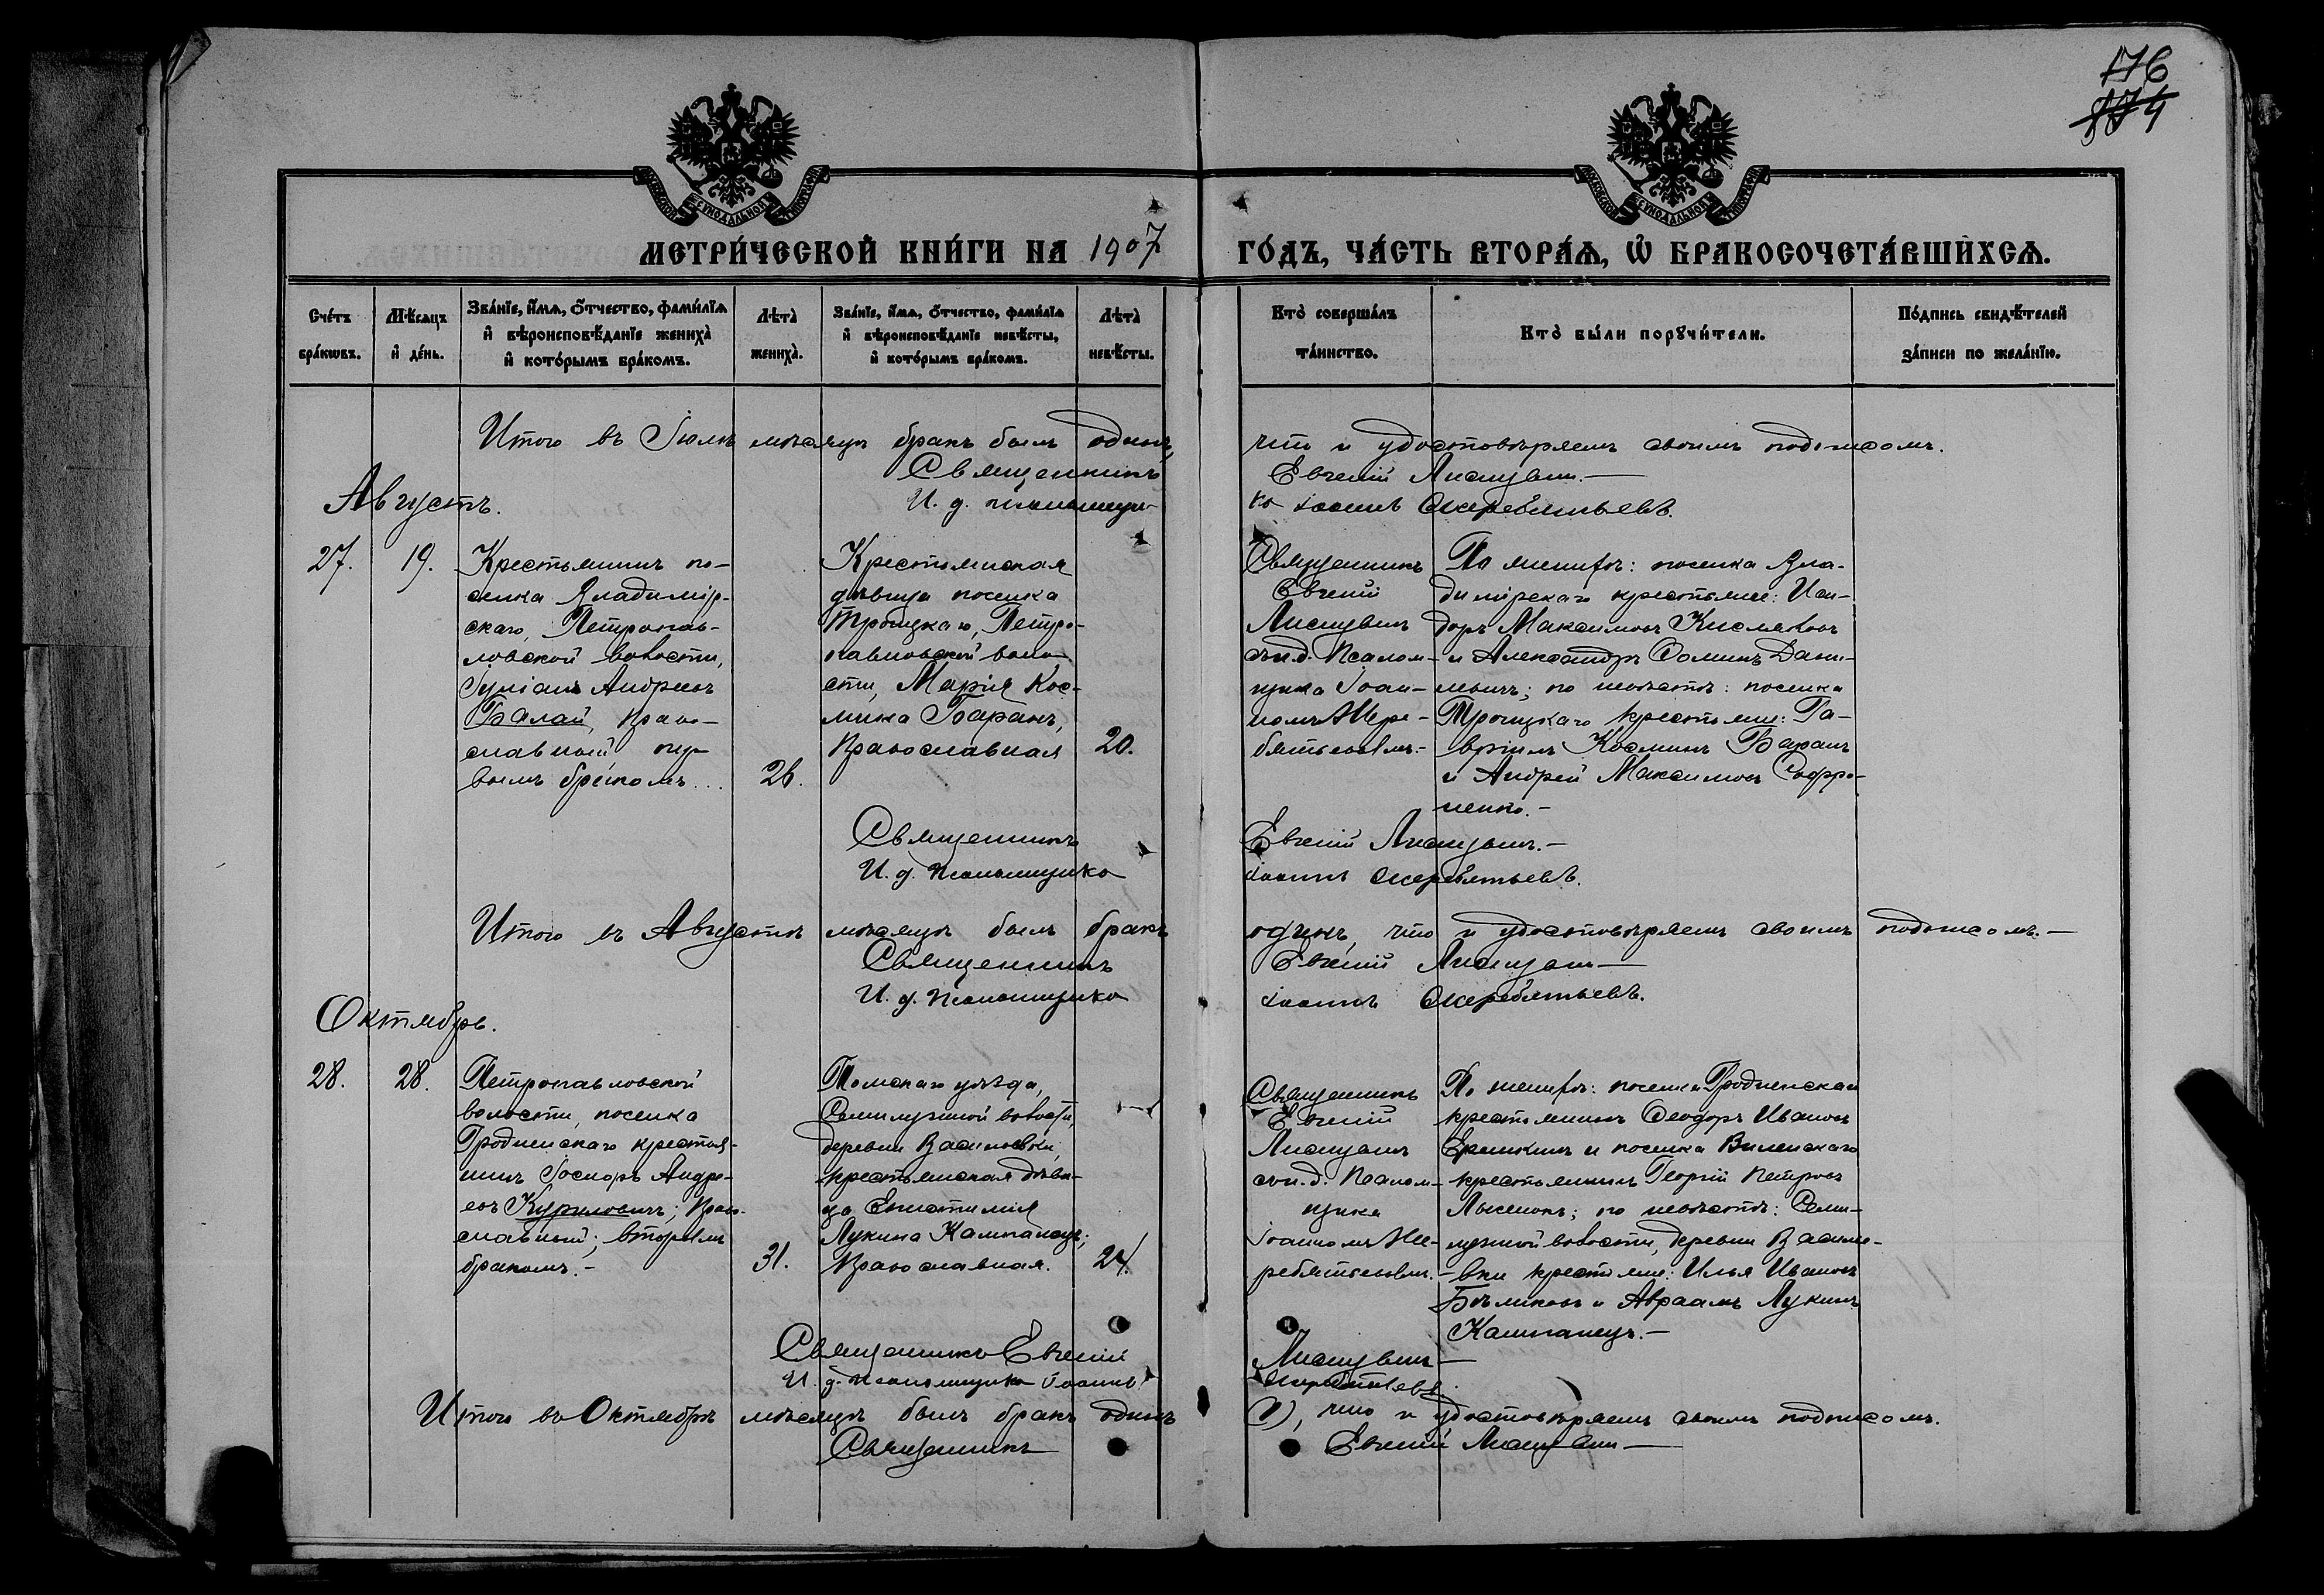 176
174
МЕТРИ́ЧЕСКОЙ КНИ́ГИ НА 1907
ГО́ДЪ, ЧА́СТЬ ВТОРА́Ѧ, Ѽ БРАКОСОЧЕТА́ВШИХСѦ.
Сче́тъ бра́кѡвъ.
Мѣ́сѧцъ и҆ де́нь.
Зва́нїе, и҆́мѧ, о҆́тчество, фами́лїѧ
и҆ вѣроисповѣ́данїе жениха̀
и҆ кото́рымъ бра́комъ.
Лѣта̀ жениха̀.
Зва́нїе, и҆́мѧ, о҆́тчество, фами́лїѧ
и҆ вѣроисповѣ́данїе невѣ́сты,
и҆ кото́рымъ бра́комъ.
Лѣта̀ невѣ́сты.
Кто̀ соверша́лъ та́инство.
Кто̀ бы́ли порꙋчи́тели.
По́дпись свидѣ́телей за́писи по жела́нїю.
Итого въ Іюлѣ мѣсяцѣ бракъ былъ одинъ,
что и удостовѣряемъ своимъ подписомъ.
Священникъ
Евгеній
И. д. псаломщи-
ка Іоаннъ Жеребятьевъ.
Августъ.
27.
19.
Крестьянинъ по-
селка Владимір-
скаго, Петропав-
ловской волости,
Іуліанъ Андреевъ
Балай, Право-
славный пер-
вымъ бракомъ...
26.
Крестьянская
дѣвица поселка
Троицкаго, Петро-
павловской воло-
сти, Марія Кос-
мина Баранъ,
Православная
20.
Священникъ
Евгеній
съ и. д. Псалом-
щика Іоан-
номъ Жере-
бятьевымъ.-
По женихѣ: поселка Вла-
димірскаго крестьяне: Иси-
доръ Максимовъ Кисляковъ
и Александръ Ѳоминъ
по невѣстѣ: поселка
Троицкаго крестьяне: Га-
вріилъ Косминъ Баранъ
и Андрей Максимовъ Софро-
ненко.-
Священникъ
Евгеній
И. д. Псаломщика
Іоаннъ Жеребятьевъ.
Итого въ Августѣ мѣсяцѣ былъ бракъ
одинъ, что и удостовѣряемъ своимъ подписомъ.-
Священникъ
Евгеній
И. д. Псаломщика
Іоаннъ Жеребятьевъ.
Октябрь.
28.
28.
Петропавловской
волости, поселка
Гродненскаго крестья-
нинъ Іосифъ Андре-
евъ Куриловичъ; Право-
славный; вторымъ
бракомъ.-
31.
Томскаго уѣзда,
Семилужной волости,
деревни Васильевки,
крестьянская дѣви-
ца
Лукина Кампанецъ;
Православная.
24.
Священникъ
Евгеній
съ и. д. Псалом-
щика
Іоанномъ Же-
ребятьевымъ.-
По женихѣ: поселка Гродненскаго
крестьянинъ Ѳеодоръ Ивановъ
и поселка Виленскаго
крестьянинъ Георгій Петровъ
по невѣстѣ: Семи-
лужной волости, деревни Василье-
вки крестьяне: Илья Ивановъ
Бѣликовъ и Авраамъ Лукинъ
Кампанецъ.-
Священникъ Евгеній
И. д. Псаломщика Іоаннъ
Жеребятьевъ.
Итого въ Октябрѣ мѣсяцѣ былъ бракъ одинъ
(1), что и удостовѣряемъ своимъ подписомъ.
Священникъ
Евгеній